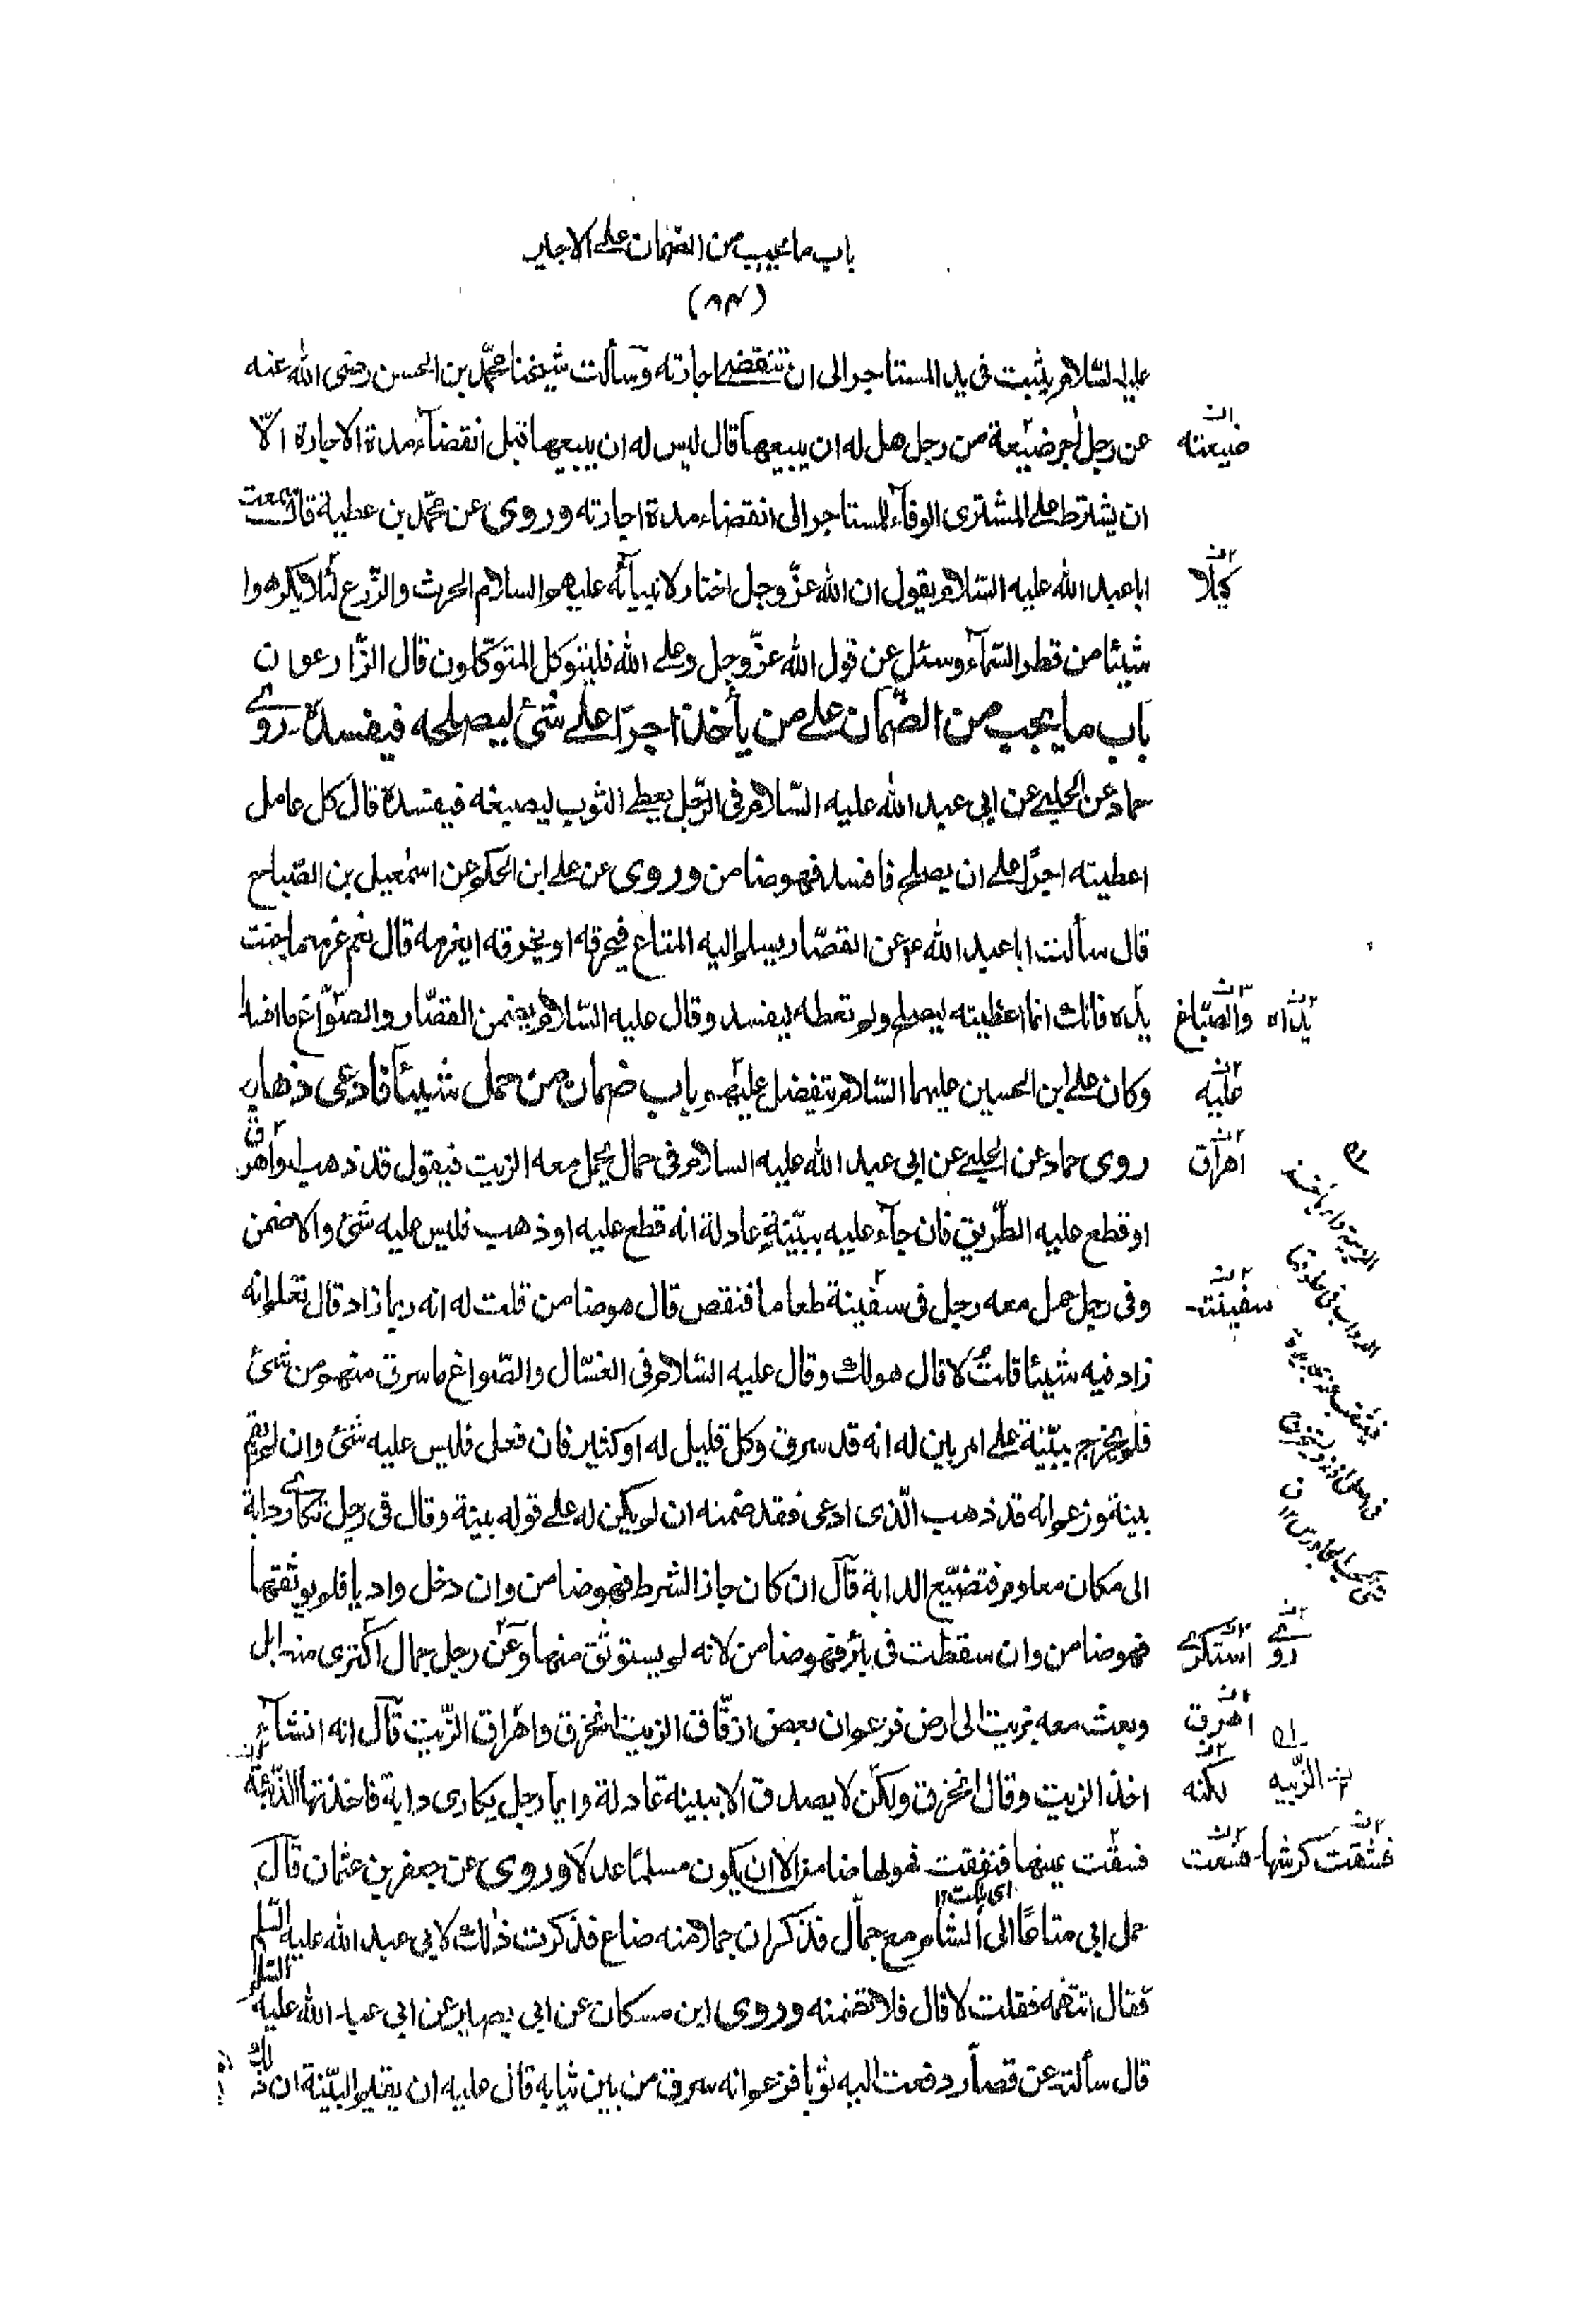 باب ما يجب من الضمان على الاجير
(۸۴)
عليه السّلام يثبت فى يد المستاجر الى ان تنقضى اجارته وسألت شيخنا محمّد بن الحسن رضى الله عنه
عن رجل اجر ضيعة من رجل هل له ان يبيعها قال ليس له ان يبيعها قبل انقضآء مدة الاجارة الّا
ضيعته
ان يشترط على المشترى الوفآء للمستاجر الى انقضاء مدة اجارته وروى عن محمّد بن عطية قال سمعت
ابا عبد الله عليه السّلام يقول ان الله عزّ وجل اختار لانبيآئه عليهم السلام الحرث والزّرع لئلا يكرهوا
كيلا
شيئا من قطر السّمآء وسئل عن قول الله عزّ وجل وعلى الله فليتوكل المتوكّلون قال الزّارعون
باب ما يجب من الضّمان على من يأخذ اجرًا على شئ ليصلحه فيفسده روى
حماد عن الحلبى عن ابى عبد الله عليه السّلام فى الرّجل يعطى الثوب ليصبغه فيفسده قال كل عامل
اعطيته اجرًا على ان يصلح فافسد فهو ضامن وروى عن على ابن الحكم عن اسمٰعيل بن الصّباح
قال سألت ابا عبد الله ع عن القصّار يسلم اليه المتاع فيحرقه او يخرقه ايغرمه قال نعم غرمه ما جنت
يده فانك انما اعطيته ليصلح ولم تعطه ليفسد وقال عليه السّلام يضمن القصّار والصّوّاغ ما افسدا
والصبّاغ يداه
وكان على ابن الحسين عليهما السّلام يتفضل عليهم باب ضمان من حمل شيئا فادعى ذهابه
عليه
روى حماد عن الحلبى عن ابى عبد الله عليه السلام فى حمال يحمل معه الزيت فيقول قد ذهب او اهرق
اهراق
او قطع عليه الطّريق فان جآء عليه ببيّنةٍ عادلة انه قطع عليه او ذهب فليس عليه شئ والا ضمن
وفى رجل حمل معه رجل فى سفينة طعاما فنقص قال هو ضامن قلت له انه ربما زاد قال تعلم انه
سفينته
زاد فيه شيئا قلت لا قال هو لك وقال عليه السّلام فى الغسّال والصّواغ ما سرق منهم من شئ
فلم يخرج ببيّنة على امر بين له انه قد سرق وكل قليل له او كثير فان فعل فليس عليه شئ وان لم يقم
بينة وزعم انه قد ذهب الّذى ادعى فقد ضمنه ان لم يكن له على قوله بينة وقال فى رجل تكارى دابة
الى مكان معلوم فتضيّع الدابة قال ان كان جاز الشرط فهو ضامن وان دخل واديا فلم يوثقها
فهو ضامن وان سقطت فى بئر فهو ضامن لانه لم يستوثق منها وعن رجل جمال اكترى منه ابل
استكرى روى
وبعث معه بزيت الى ارض فزعم ان بعض ازقّاق الزيت انخرق واهراق الزّيت قال انه انشآء
اهرق
اخذ الزيت وقال انخرق ولكن لا يصدق الا ببينة عادلة وايما رجل يكارى دابة فاخذتها الذئبة
لكنه
فشقت عينها فنفقت فهو لها ضامن الا ان يكون مسلمًا عدلًا وروى عن جعفر بن عثمان قال
فشقت كرشها
حمل ابى متاعًا الى الشام مع جمّال فذكر ان حملا منه ضاع فذكرت ذٰلك لابى عبد الله عليه السّلم
فقال اتتهمه فقلت لا قال فلا تضمنه وروى ابن مسكان عن ابى بصير عن ابى عبد الله عليه السّلام
قال سألته عن قصار دفعت اليه ثوبا فزعم انه سرق من بين ثيابه قال عليه ان يقيم البيّنة ان ذلك